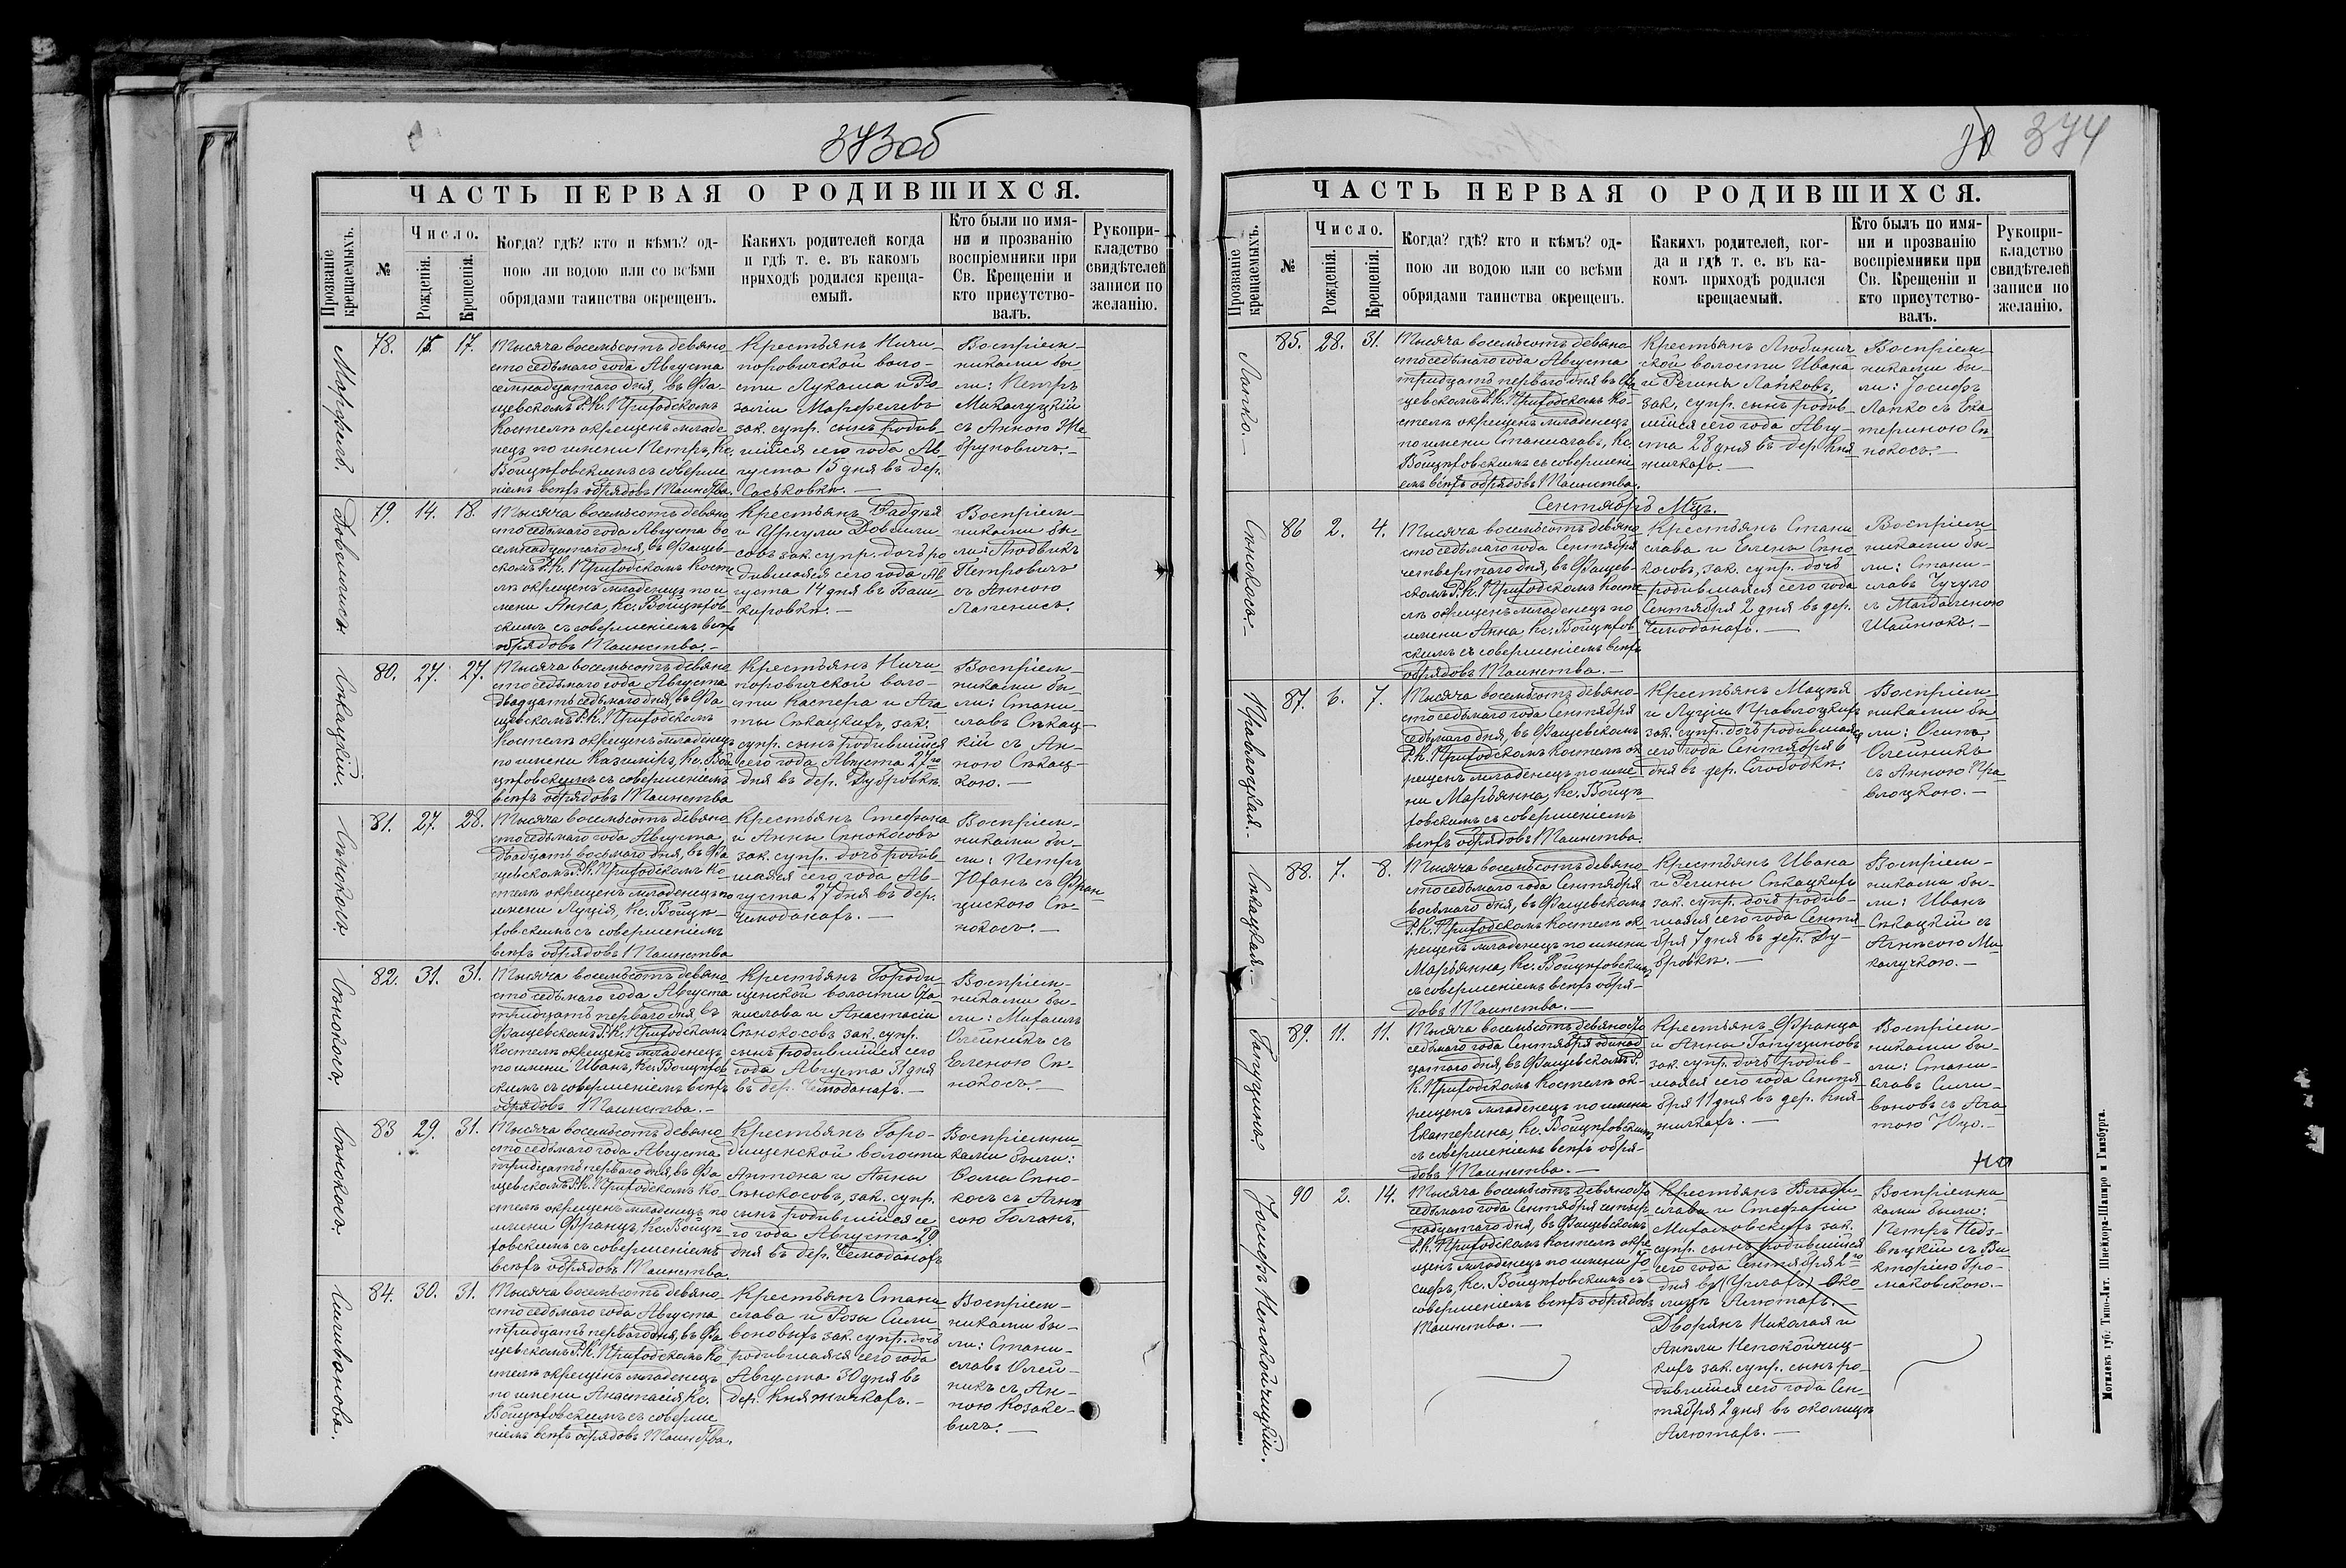 373об
ЧАСТЬ ПЕРВАЯ О РОДИВШИХСЯ.
Прозваніе крещаемыхъ.
№
Число.
Рожденія.
Крещенія.
Когда? гдѣ? кто и кѣмъ? од-
ною ли водою или со всѣми
обрядами таинства окрещенъ.
Какихъ родителей когда
и гдѣ т. е. въ какомъ
приходѣ родился креща-
емый.
Кто были по имя-
ни и прозванію
воспріемники при
Св. Крещеніи и
кто присутство-
валъ.
Рукопри-
кладство
свидѣтелей
записи по
желанію.
78. 15. 17.
Тысяча восемьсотъ девяно-
сто седьмаго года Августа
семнадцатаго дня, въ Фа-
щевскомъ Р.К. Приходскомъ
Костелѣ окрещенъ младе
нецъ по имени Петръ, Кс.
Войцѣховскимъ съ соверше
ніемъ всѣхъ обрядовъ Таинства.
Крестьянъ Ничи-
поровичской воло-
сти Лукаша и Ро-
заліи
зак. супр. сынъ родив-
шійся сего года Ав-
густа 15 дня въ дер.
Саськовкѣ.—
Воспріем-
никами бы-
ли: Петръ
Микалуцкій
съ Анною
79. 14. 18.
Тысяча восемьсотъ девяно
сто седьмаго года Августа во
семнадцатаго дня, въ Фащев-
скомъ Р.К. Приходскомъ Косте
лѣ окрещенъ младенецъ по и
мени Анна, Кс. Войцѣхов-
скимъ съ совершеніемъ всѣхъ
обрядовъ Таинства.—
Крестьянъ Фаддѣя
и Урсули
зак. супр. дочь ро
дившаяся сего года Ав
густа 14 дня въ Баш-
каровкѣ.—
Воспріем-
никами бы-
ли: Людвикъ
Петровичъ
съ Анною
80. 27. 27.
Сѣкацкій.
Тысяча восемьсотъ девяно
сто седьмаго года Августа
двадцать седьмаго дня, въ Фа
щевскомъ Р.К. Приходскомъ
Костелѣ окрещенъ младенецъ
по имени Казиміръ, Кс. Вой
цѣховскимъ съ совершеніемъ
всѣхъ обрядовъ Таинства
Крестьянъ Ничи
поровичской воло-
сти Каспера и Ага
ты Сѣкацкихъ, зак.
супр. сынъ родившійся
сего года Августа 27го
дня въ дер. Дубровкѣ.
Воспріем-
никами бы-
ли: Стани-
славъ Сѣкац-
кій съ Ан-
ною Сѣкац-
кою.—
81. 27. 28.
Сѣнокосъ.
Тысяча восемьсотъ девяно
сто седьмаго года Августа
двадцать восьмаго дня, въ Фа
щевскомъ Р.К. Приходскомъ Ко-
стелѣ окрещенъ младенецъ по
имени Луція, Кс. Войцѣ-
ховскимъ съ совершеніемъ
всѣхъ обрядовъ Таинства
Крестьянъ Стефана
и Анны Сѣнокосовъ
зак. супр. дочь родив-
шаяся сего года Ав-
густа 27 дня въ дер.
Чемоданахъ.—
Воспріем-
никами бы-
ли: Петръ
Юханъ съ Фран-
цискою Сѣ-
нокосъ.—
82. 31. 31.
Сѣнокосъ.
Тысяча восемьсотъ девяно
сто седьмаго года Августа
тридцать перваго дня въ
Фащевскомъ Р.К. Приходскомъ
Костелѣ окрещенъ младенецъ
по имени Иванъ, Кс. Войцѣхов
скимъ съ совершеніемъ всѣхъ
обрядовъ Таинства.—
Крестьянъ Городи
щенской волости
и Анастасіи
Сѣнокосовъ зак. супр.
сынъ родившійся сего
года Августа 31 дня
въ дер. Чемоданахъ.—
Воспріем-
никами бы-
ли: Михаилъ
Олейникъ съ
Еленою Сѣ-
нокосъ.—
83 29. 31.
Сѣнокосъ.
Тысяча восемьсотъ девяно
сто седьмаго года Августа
тридцать перваго дня, въ Фа
щевскомъ Р.К. Приходскомъ Ко-
стелѣ окрещенъ младенецъ по
имени Францъ, Кс. Войцѣ-
ховскимъ съ совершеніемъ
всѣхъ обрядовъ Таинства.
Крестьянъ Горо-
дищенской волости
Антона и Анны
Сѣнокосовъ, зак. супр.
сынъ родившійся се
го года Августа 29
дня въ дер. Чемоданахъ
Воспріемни
ками были:
Сѣно-
косъ съ Агнѣ
сою
84. 30. 31.
Силиванова.
Тысяча восемьсотъ девяно-
сто седьмаго года Августа
тридцать перваго дня, въ Фа
щевскомъ Р.К. Приходскомъ Ко-
стелѣ окрещенъ младенецъ
по имени Анастасія Кс.
Войцѣховскимъ съ соверше
ніемъ всѣхъ обрядовъ Таинства.
Крестьянъ Стани
слава и Розы Сили-
вановыхъ зак. супр. дочь
родившаяся сего года
Августа 30 дня въ
дер. Княжичкахъ.—
Воспріем-
никами бы-
ли: Стани-
славъ Олей-
никъ съ Ан-
ною Козаке-
вичъ.—
374
ЧАСТЬ ПЕРВАЯ О РОДИВШИХСЯ.
Прозваніе крещаемыхъ.
№
Число.
Рожденія.
Крещенія.
Когда? гдѣ? кто и кѣмъ? од-
ною ли водою или со всѣми
обрядами таинства окрещенъ.
Какихъ родителей, ког-
да и гдѣ т. е. въ ка-
комъ приходѣ родился
крещаемый.
Кто былъ по имя-
ни и прозванію
воспріемники при
Св. Крещеніи и
кто присутство-
валъ.
Рукопри-
кладство
свидѣтелей
записи по
желанію.
85. 28. 31.
Лапко.—
Тысяча восемьсотъ девяно
сто седьмаго года Августа
тридцать перваго дня въ Фа
щевскомъ Р.К. Приходскомъ Ко-
стелѣ окрещенъ младенецъ
по имени Станиславъ, Кс.
Войцѣховскимъ съ совершені-
емъ всѣхъ обрядовъ Таинства.
Крестьянъ Любинич
ской волости Ивана
и Регины Лапковъ,
зак. супр. сынъ родив-
шійся сего года Авгу-
ста 28 дня въ дер. Кня
жичкахъ.—
Воспріем-
никами бы-
ли: Іосифъ
Лапко съ Ека
териною Сѣ-
нокосъ.—
Сентябрь Мцъ.
86 2. 4.
Сѣнокосъ.—
Тысяча восемьсотъ девяно
сто седьмаго года Сентября
четвертаго дня, въ Фащев-
скомъ Р.К. Приходскомъ Косте
лѣ окрещенъ младенецъ по
имени Анна, Кс. Войцѣхов
скимъ съ совершеніемъ всѣхъ
обрядовъ Таинства.—
Крестьянъ Стани
слава и Елены Сѣно
косовъ, зак. супр. дочь
родившаяся сего года
Сентября 2 дня въ дер.
Чемоданахъ.—
Воспріем
никами бы-
ли: Стани-
славъ Чучуло
съ Магдаленою
Шайнюкъ.—
87. 6. 7.
Правлоцкая.—
Тысяча восемьсотъ девяно-
сто седьмаго года Сентября
седьмаго дня, въ Фащевскомъ
Р.К. Приходскомъ Костелѣ ок
рещенъ младенецъ по име-
ни Марьянна, Кс. Войцѣ-
ховскимъ съ совершеніемъ
всѣхъ обрядовъ Таинства.
Крестьянъ Мацѣя
и Луціи Правлоцкихъ
зак. супр. дочь родившаяся
сего года Сентября 6
дня въ дер. Слободкѣ.
Воспріем-
никами бы-
ли: Осипъ
Олейникъ
съ Анною Пра
влоцкою.—
88. 7. 8.
Сѣкацкая.—
Тысяча восемьсотъ девяно-
сто седьмаго года Сентября
восьмаго дня, въ Фащевскомъ
Р.К. Приходскомъ Костелѣ ок-
рещенъ младенецъ по имени
Марьянна, Кс. Войцѣховскимъ
съ совершеніемъ всѣхъ обря-
довъ Таинства.—
Крестьянъ Ивана
и Регины Сѣкацкихъ
зак. супр. дочь родив-
шаяся сего года Сентя
бря 7 дня въ дер. Ду-
бровкѣ.—
Воспріем-
никами бы-
ли: Иванъ
Сѣкацкій съ
Агнѣсою Ми-
калуцкою.—
89. 11. 11.
Тысяча восемьсотъ девяносто
седьмаго года Сентября одинад
цатаго дня, въ Фащевскомъ Р.
К. Приходскомъ Костелѣ ок-
рещенъ младенецъ по имени
Екатерина, Кс. Войцѣховскимъ
съ совершеніемъ всѣхъ обря-
довъ Таинства.—
Крестьянъ Франца
и Анны
зак. супр. дочь родив-
шаяся сего года Сентя-
бря 11 дня въ дер. Кня-
жичкахъ.—
Воспріем-
никами бы-
ли: Стани-
славъ Сили-
вановъ съ Ага-
тою Юцо.—
90 2. 14.
Іосифъ Непокойчицкій.
Тысяча восемьсотъ девяносто
седьмаго года Сентября четыр
надцатаго дня, въ Фащевскомъ
Р.К. Приходскомъ Костелѣ окре
щенъ младенецъ по имени Іо
сифъ, Кс. Войцѣховскимъ съ
совершеніемъ всѣхъ обрядовъ
Таинства.—
Крестьянъ Влади-
слава и Стефаніи
Михаловскихъ зак.
супр. сынъ родившійся
сего года Сентября 2го
дня въ Око-
лицѣ Алютахъ.—
Дворянъ Николая и
Анели Непокойчиц-
кихъ зак. супр. сынъ ро-
дившійся сего года Сен-
тября 2 дня въ околицѣ
Алютахъ.—
Воспріемни
ками были:
Петръ Недз-
вѣцкій съ Ви-
кторіею Гро-
маковскою.—
Могилевъ губ. Типо-Лит. Шнейдора-Шапиро и Гинзбурга.